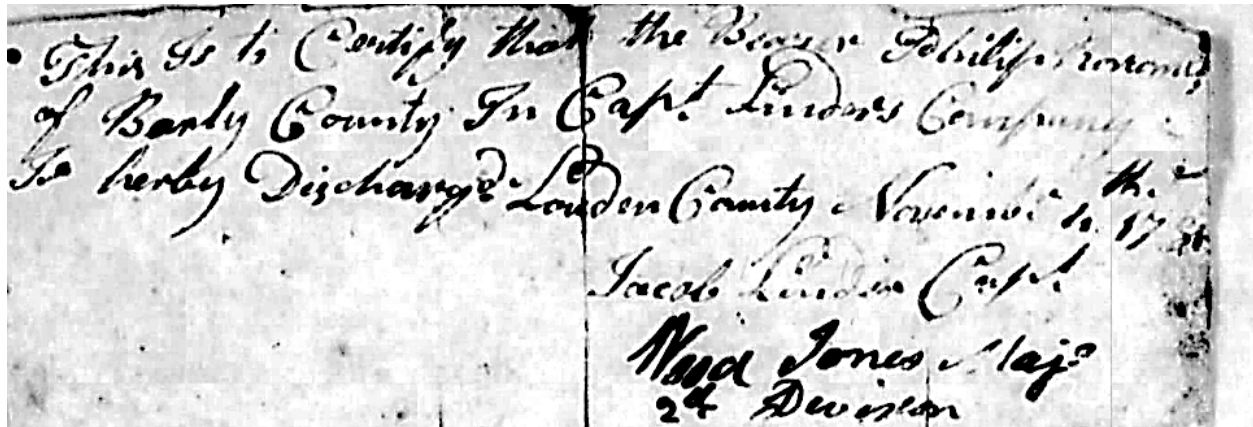 This Is to Certify that the Bearer Philip
of Barly County In Capt Linders Company
Is herby Discharg'd Louden County Novemb.r 4.th 17
Jacob Linder Capt
Wood Jones Majr
2d Devision